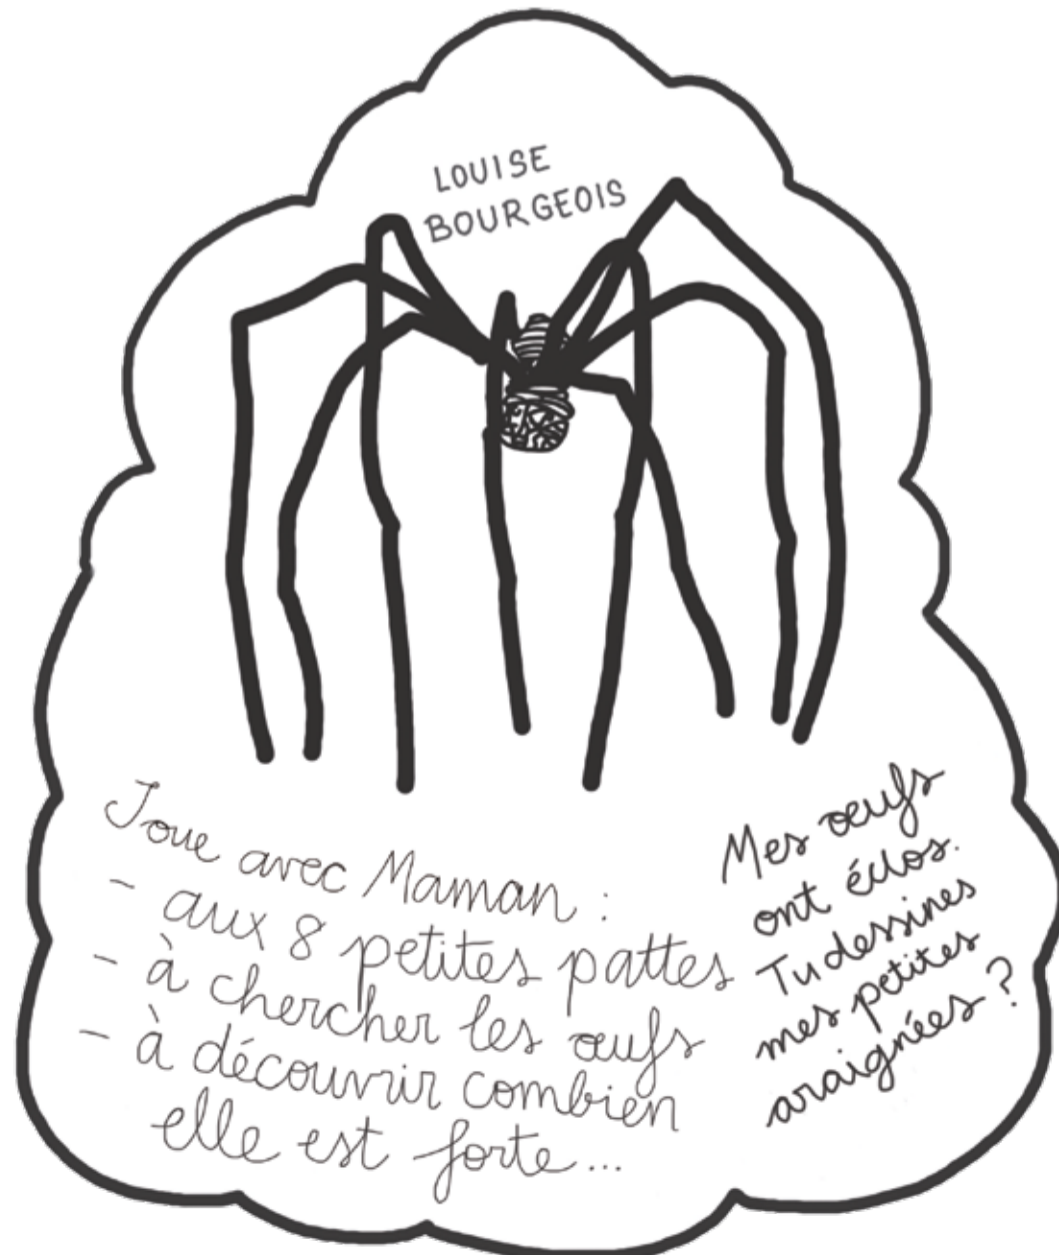 LOUISE
BOURGEOIS
Joue avec Maman :
- aux 8 petites pattes
- à chercher les œufs
- à découvrir combien
elle est forte...
Mes œufs
ont éclos.
Tu dessines
mes petites
araignées ?